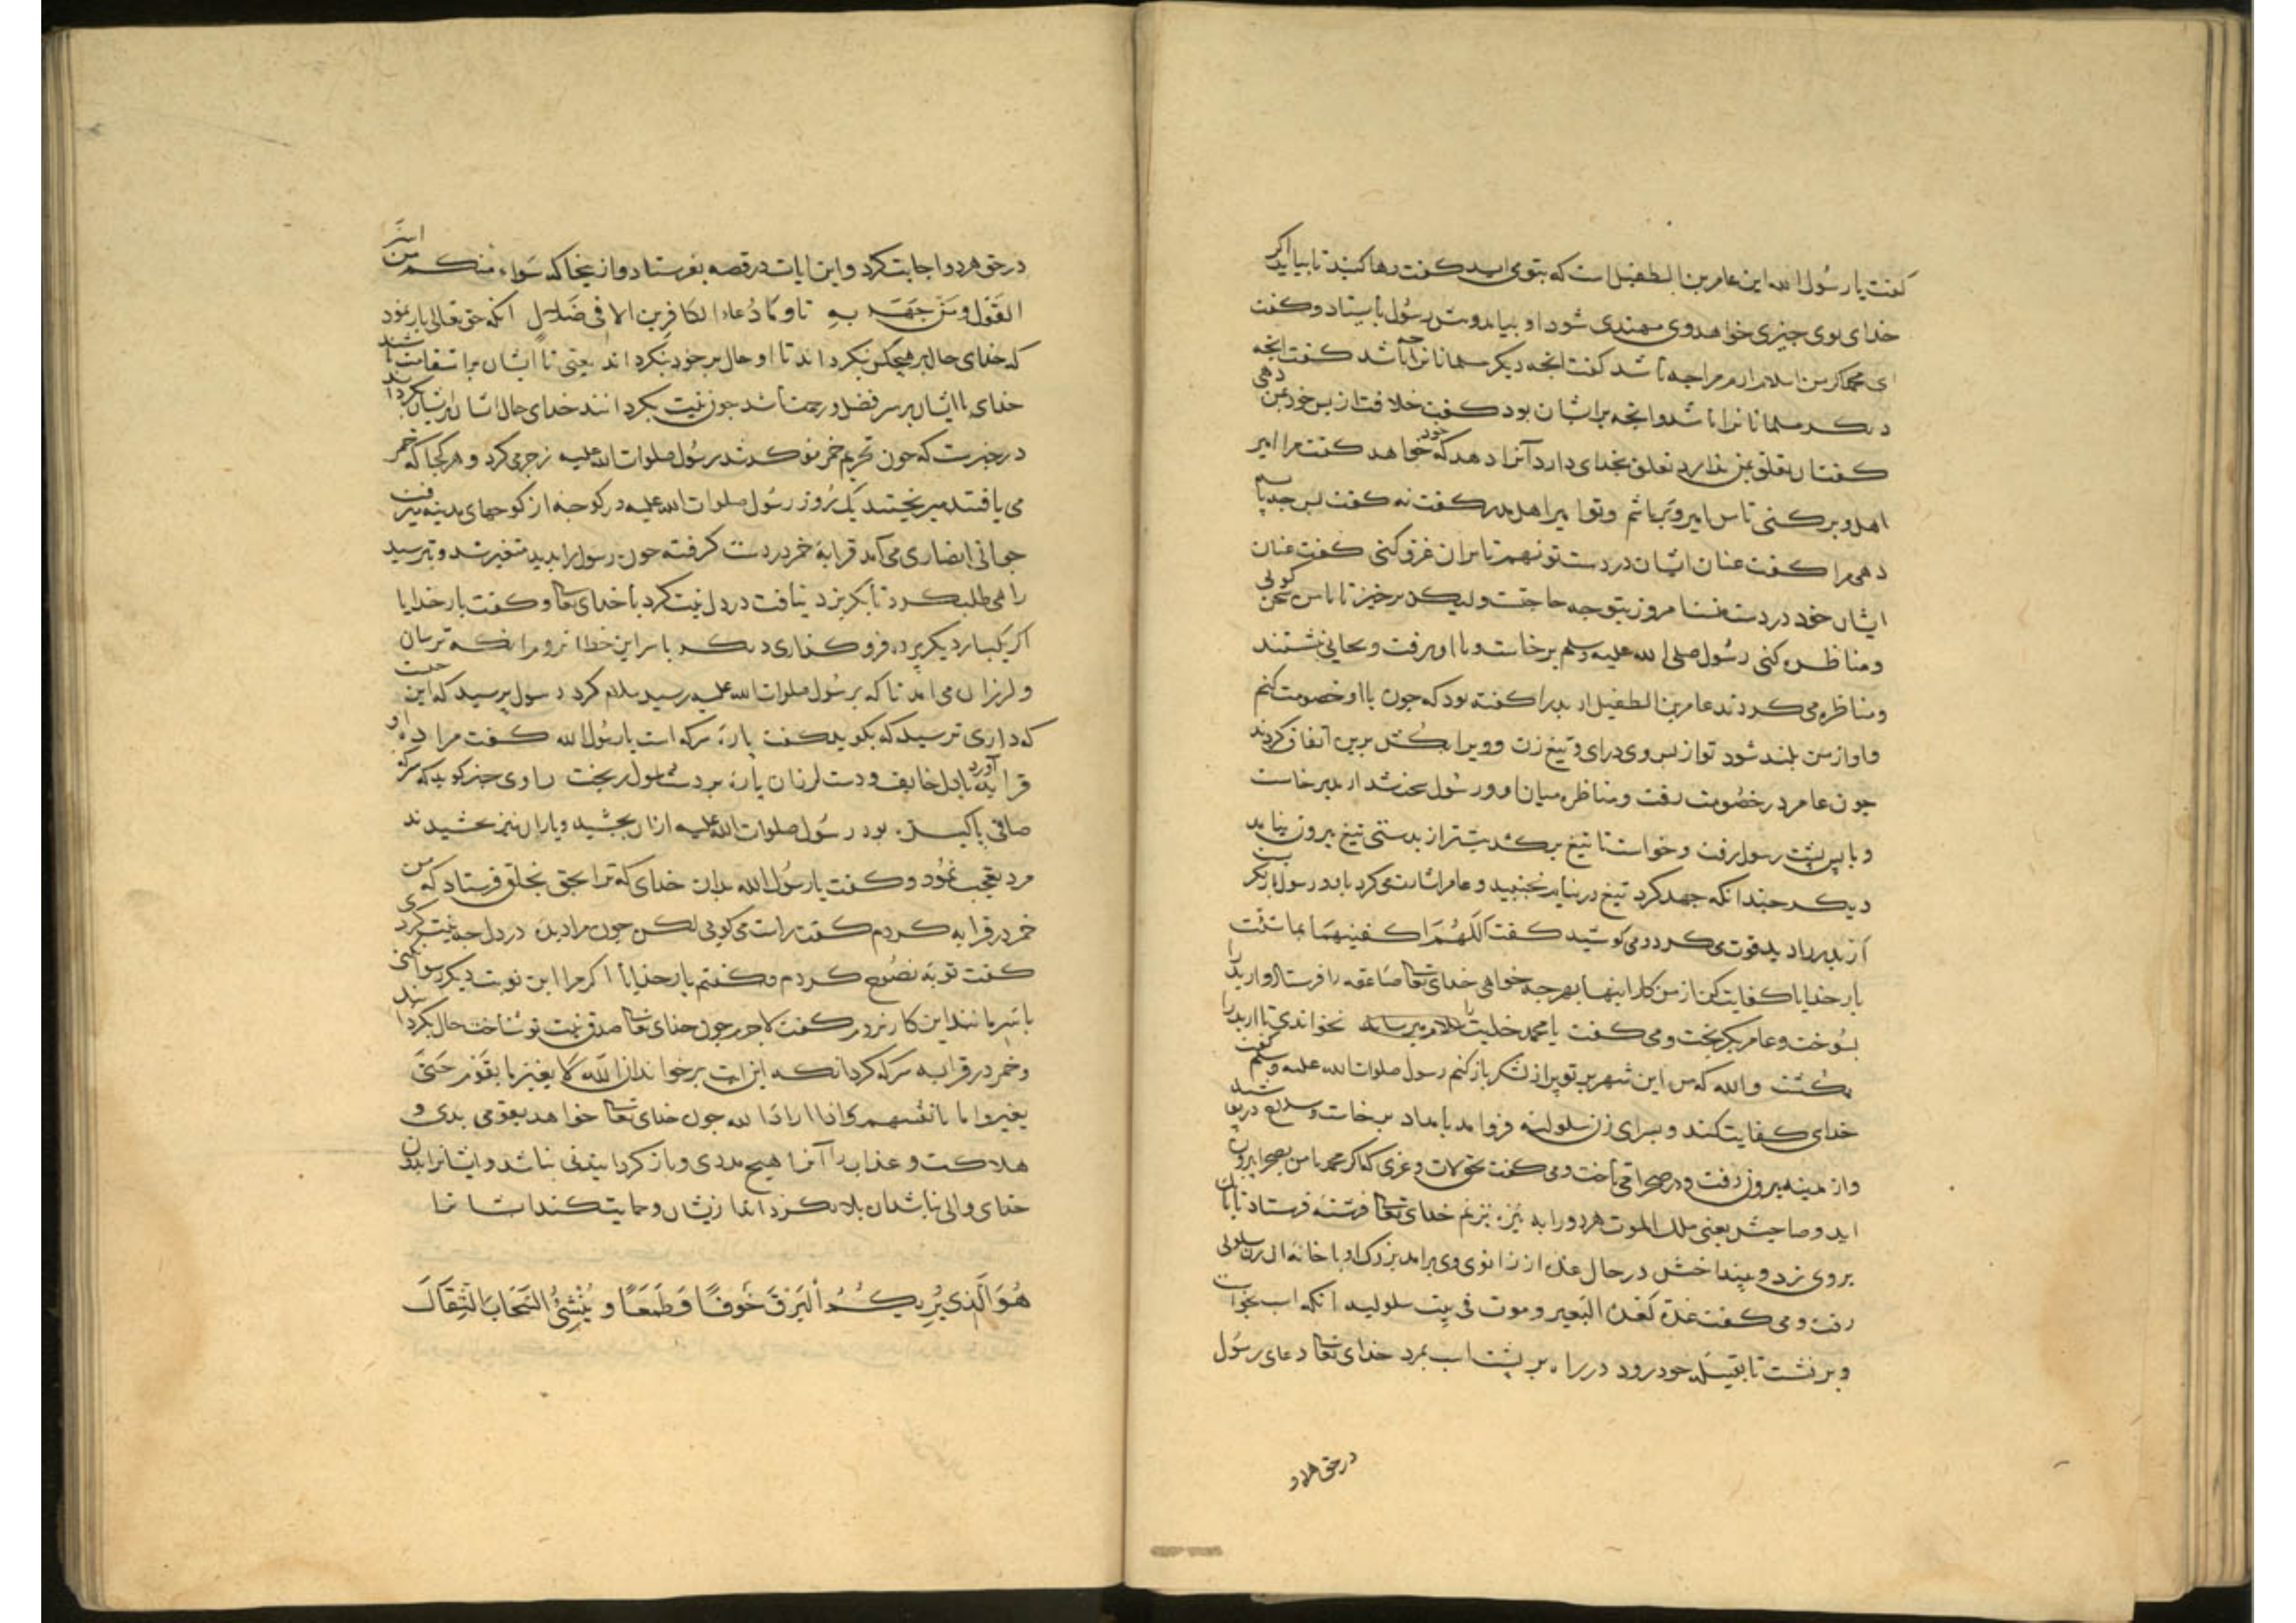 کفت یا رسول الله این عامر بن الطفیل است که بتو می اید کفت رها کنید تا بیاید اکر
خدای بوی چیزی خواهد وی مهتدی شود او بیامد و پیش رسول بایستاد و کفت
ای محمد اکر من اسلام ارم مرا چه باشد کفت انچه دیکر مسلمانانرا باشد کفت انچه
دیکر مسلمانانرا باشد و انچه بر ایشان بود کفت خلافت از پس خود بمن دهی
کفت ان تعلق بمن ندارد تعلق بخدای دارد آنرا دهد که خود خواهد کفت مرا امیر
اهل وبر کنی تا من امیر وبر باشم و تو امیر اهل مدر کفت نه کفت پس چه
دهی مرا کفت عنان اسپان در دست تو نهم تا بران غزو کنی کفت عنان
اسپان خود در دست منست امروز بتو چه حاجتست ولیکن برخیز تا با من سخن کویی
و مناظره کنی رسول صلی الله علیه وسلم برخاست و با او برفت و بجایی بنشستند
و مناظره می کردند عامر بن الطفیل اربد را کفته بود که چون با او خصومت کنم
و اواز من بلند شود تو از پس وی درای و تیغ زن و ویرا بکش برین اتفاق کردند
چون عامر در خصومت رفت و مناظره میان او و رسول سخت شد اربد برخاست
و با پس پشت رسول رفت و خواست تا تیغ برکشد بیشتر از بدستی تیغ بیرون نیامد
دیکر چندانکه جهد کرد تیغ در نیام بجنبید و عامر اشارت می کرد باربد رسول باز نکرست
اربد را دید قوت می کرد و می کوشید کفت اللهم اکفنیهما بما شئت
بار خدایا کفایت کن از من کار اینها بهر چه خواهی خدای تعالی صاعقه را فرستاد و اربد را
بسوخت و عامر بکریخت و می کفت یا محمد خدایت را بخواندی تا اربد را
بکشت والله که من این شهر بر تو پر از لشکر باز کنم رسول صلوات الله علیه وسلم کفت
خدای کفایت کند و بسرای زن سلولیه فروامد بامداد برخاست و سلاح در پوشید
و از مدینه بیرون رفت و در صحرا می تاخت و می کفت بحق لات و عزی که اکر محمد با من بصحرا بیرون
اید و صاحبش یعنی ملک الموت هر دو را به نیزه بزنم خدای تعالی فرشته فرستاد تا
بروی زد و بینداختش در حال غده از زانوی وی برامد بزرک او با خانه ان زن سلولی
رفت و می کفت غدة کغدة البعیر و موت فی بیت سلولیه انکه اسب بخواست
و بر نشست تا بقبیله خود رود در راه بر پشت اسب بمرد خدای تعالی دعای رسول
در حق هر دو
در حق هر دو اجابت کرد و این ایات در قصه بفرستاد و از اینجا که سواء منکم من اسر
القول و من جهر به تا و ما دعاء الکافرین الا فی ضلال انکه حق تعالی باز نمود
که خدای حال بر هیچکس نکرداند تا او حال بر خود نکرداند یعنی تا ایشان بر استقامت باشند
خدای با ایشان بر سر فضل و رحمت باشد چون نیت بکردانند خدای حال ایشان بر ایشان بکرداند
در خبرست که چون تحریم خمر کردند رسول صلوات الله علیه زجر می کرد و هر کجا که خمر
می یافتند میریختند یک روز رسول صلوات الله علیه در کوچه از کوچهای مدینه میرفت
جوانی انصاری می آمد قرابهٔ خمر در دست کرفته چون رسول را بدید متغیر شد و بترسید
راهی طلب کرد تا بکریزد نیافت در دل نیت کرد با خدای تعالی و کفت بار خدایا
اکر یکبار دیکر پرده فرو کذاری دیکر با سر این خطا نروم انکه ترسان
و لرزان می امد تا که برسول صلوات الله علیه رسید سلام کرد رسول پرسید که این چیست
که داری ترسید که بکوید کفت پارهٔ سرکه است یا رسول الله کفت مرا ده او
قرابه آورد با دل خایف و دست لرزان پارهٔ بر دست رسول ریخت راوی خبر کوید که سرکه
صافی پاکیزه بود رسول صلوات الله علیه ازان بچشید و یاران نیز بچشیدند
مرد تعجب نمود و کفت یا رسول الله بدان خدای که ترا بحق بخلق فرستاد که من
خمر در قرابه کردم کفت راست می کویی لکن چون مرا دیدی در دل چه نیت کردی
کفت توبه نصوح کردم و کفتم بار خدایا اکر مرا این نوبت دیکر رسوا نکنی
با سر مانند این کار نروم کفت لاجرم چون خدای تعالی صدق نیت تو شناخت حال بکردانید
و خمر در قرابه سرکه کرد انکه این ایت برخواند ان الله لا یغیر ما بقوم حتی
یغیروا ما بانفسهم و اذا اراد الله چون خدای تعالی خواهد بقومی بدی و
هلاکت و عذاب را آنرا هیچ مردی و باز کردانیدنی نباشد و ایشانرا بدون
خدای والی نباشد ان بلا بکرداند از ایشان و حمایت کند ایشانرا
هُوَ الَّذِی یُرِیکُمُ الْبَرْقَ خَوْفًا وَ طَمَعًا و یُنْشِئُ السَّحَابَ الثِّقَالَ